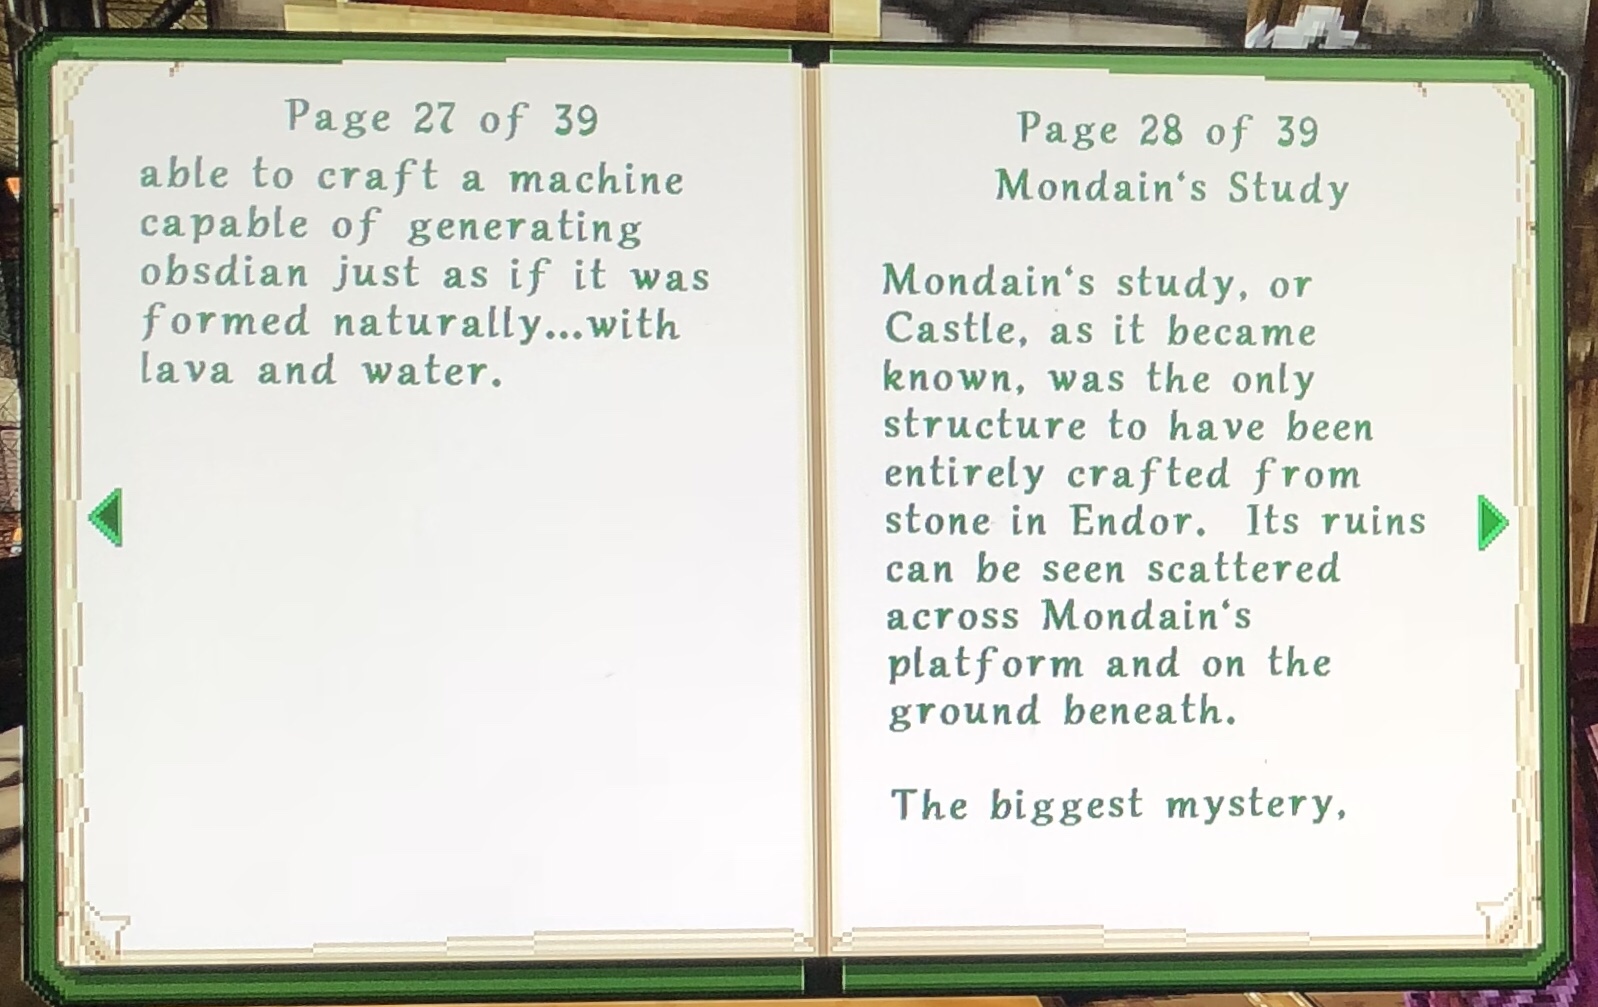 Page 27 of 39
able to craft a machine
capable of generating
obsdian just as if it was
formed naturally...with
lava and water.
Page 28 of 39
Mondain's Study
Mondain's study, or
Castle, as it became
known, was the only
structure to have been
entirely crafted from
stone in Endor.  Its ruins
can be seen scattered
across Mondain's
platform and on the
ground beneath.
The biggest mystery,